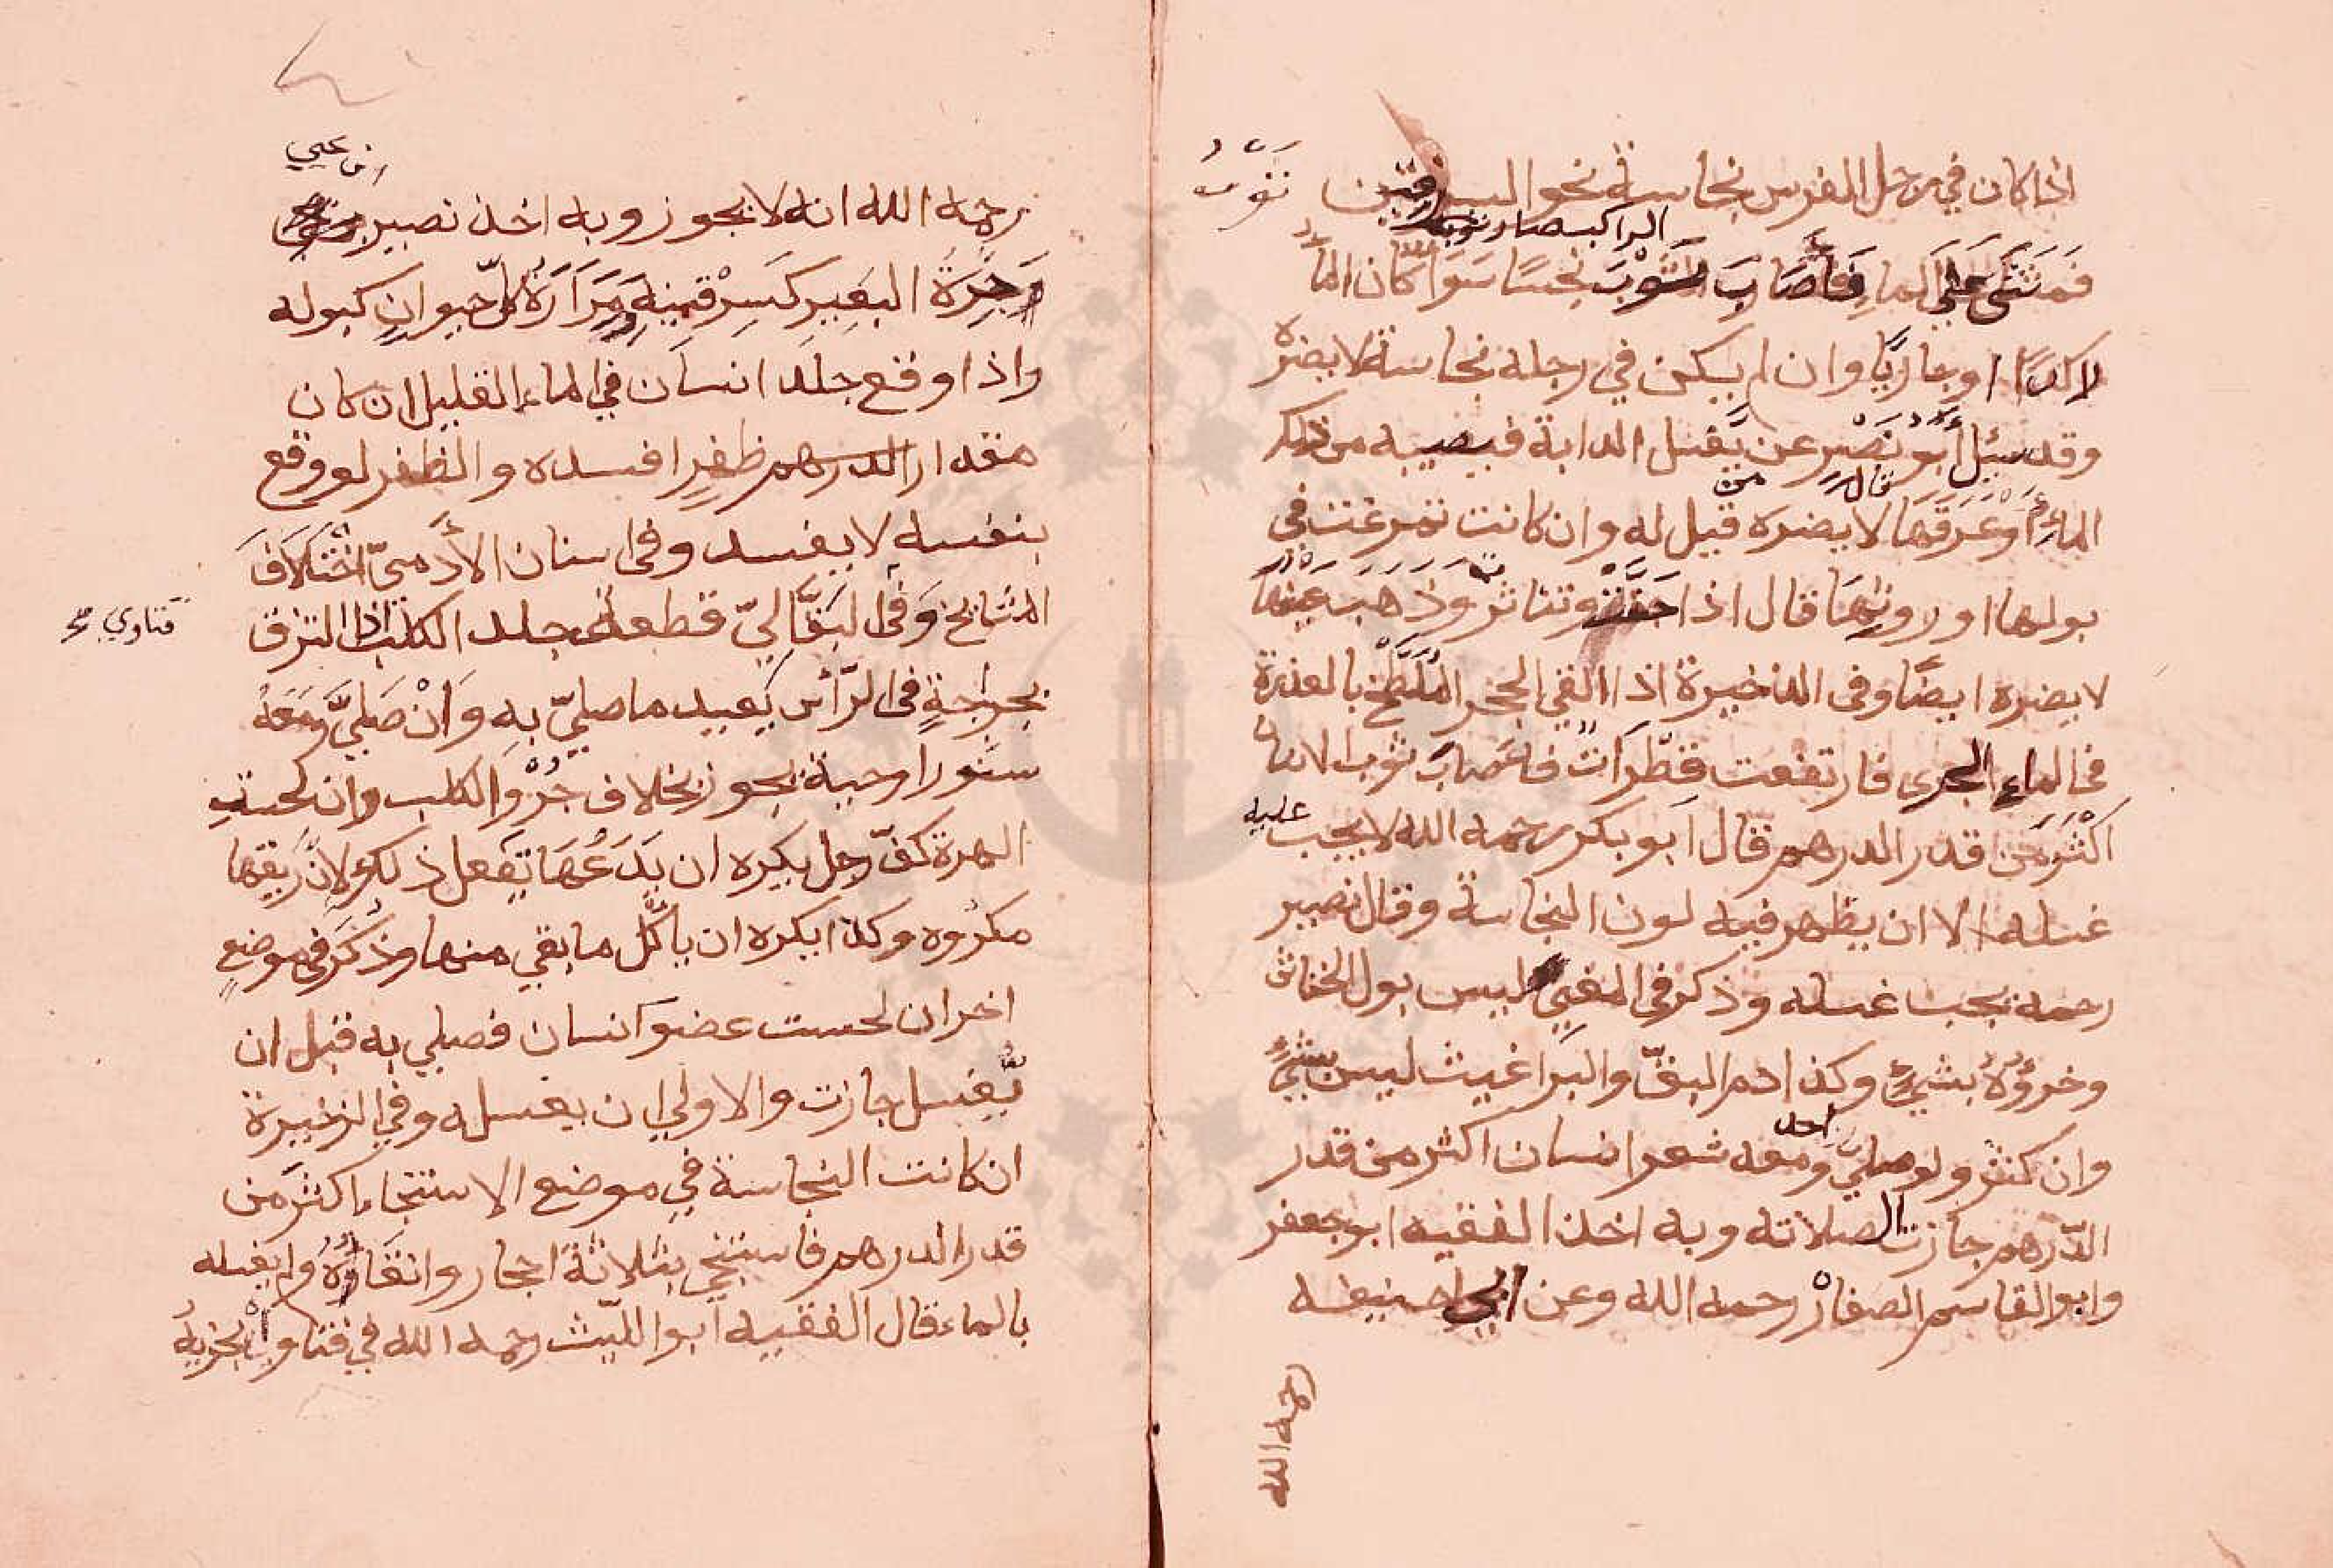 اذا كان في رجل الفرس نجاسة نحو السرقين
فَمَشَى على الماءِ فَأَصَابَ الثَّوْبَ
الراكب صار
نجسًا سَوَاءٌ كان الماءُ
راكدًا او جاريًا وان لم يكن في رجله نجاسة لا يضره
وقد سئل أبو نَصْرٍ عن يَغسل الدابة فيصيبه من ذلك
من
قال
الماءِ أَوْ عَرَقِهَا لا يضره قيل له وان كانت تمرغت في
بولها او روثها قال اذا جَفَّتْ وتناثر وذهب عينها
لا يضره ايضًا وفى الذخيرة اذا القي الحجر المُلَطَّخ بالعذرة
فى الماء الجرى فارتفعت قطّرَاتٌ فاصاب ثوب انسان
اكْثَرَ مَن قدر الدرهم قال ابو بكر رحمه الله لا يجب
عليه
غسله الا ان يظهر فيه لون النجاسة وقال نصير
رحمه يجب غسله وذكر فى المغني ليس بول الخفاش
وخروُهُ بشيءٍ وكذا دم البقّ والبَراغيث ليس بشيءٍ
وان كثر ولو صليّ
احد
ومعه شعر انسان اكثر من قدر
الدّرهم جازت الصلاته وبه اخذ الفقيه ابو جعفر
وابو القاسم الصفارْ رحمه الله وعن ابي حنيفه
رحمه الله
رحمه الله انه لا يجوز وبه اخذ نصير
بن يحيي
وَجِرَةُ البَعِيرِ كَسِرْقِينِهِ وَمَرَارَةُ كلّ حيوانٍ كبوله
واذا وقع جلد انسَان في الماء القليل ان كان
مقدار الدرهم ظفرٍ افسده والظفر لو وقع
بنفسه لا يفسد وفى اسنان الأدميّ اخْتَلَافَ
المشايخ وَفى البَقَّاليّ قطعة جلد الكلب اذا التزق
فتاوي
بجراحةٍ فى الرّأس يَعيد ما صليّ بهِ وَانْ صَليَّ وَمَعَهُ
سنّور او حية يجوز بخلاف جُرْوِ الكلب وان لحست
الهرة كفّ رجل يكره ان يَدَعُهَا تفعل ذلك لانّ ريقها
مكرُوه وكذا يكره ان ياكُل ما بقي منها وذُكَرَ فى موضعٍ
اخر ان لحست عضوَ انسان فصلي به قبل ان
يَغسل جازت والاولي ان يغسله وفي الذخيرة
ان كانت النجاسة في موضع الاستنجاء اكثَر من
قدر الدرهم فاستنجي بثلاثة احجار وانقَاهُ ولم يغسله
بالماء قال الفقيه ابو اللّيث رحمه الله في فتاويه يُجزيهُ